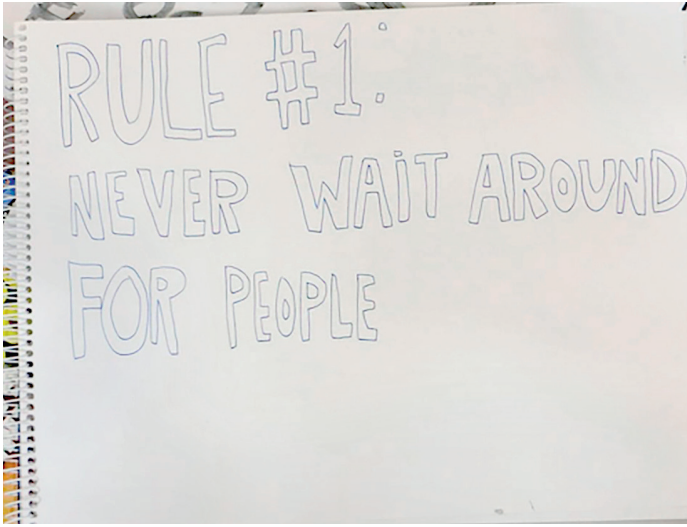 RULE #1:
NEVER WAiT AROUND
FOR PEOPLE